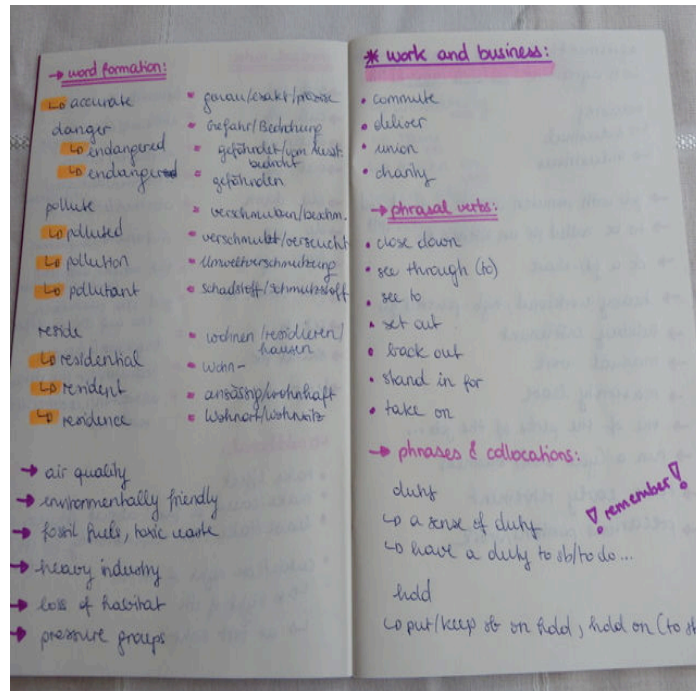 → word formation:
↳ accurate • genau/exakt/präzise
danger • Gefahr/Bedrohung
↳ endangered • gefährdet/vom Ausst. bedroht
↳ endanger • gefährden
pollute • verschmutzen/
↳ polluted • verschmutzt/verseucht
↳ pollution • Umweltverschmutzung
↳ pollutant • Schadstoff/Schmutzstoff
reside • wohnen/residieren/
hausen
↳ residential • Wohn-
↳ resident • ansässig/wohnhaft
↳ residence • Wohnort/Wohnsitz
→ air quality
→ environmentally friendly
→ fossil fuels, toxic waste
→ heavy industry
→ loss of habitat
→ pressure groups
* work and business:
• commute
• deliver
• union
• charity
→ phrasal verbs:
• close down
• see through (to)
• see to
• set out
• back out
• stand in for
• take on
→ phrases & collocations:
duty
! remember!
↳ a sense of duty
↳ have a duty to sb/to do...
hold
↳ put/keep sb on hold, hold on (to sb